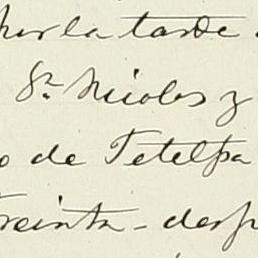 por la tarde
Sn. Nicolas y
o de Tetelpa
Treinta - desp